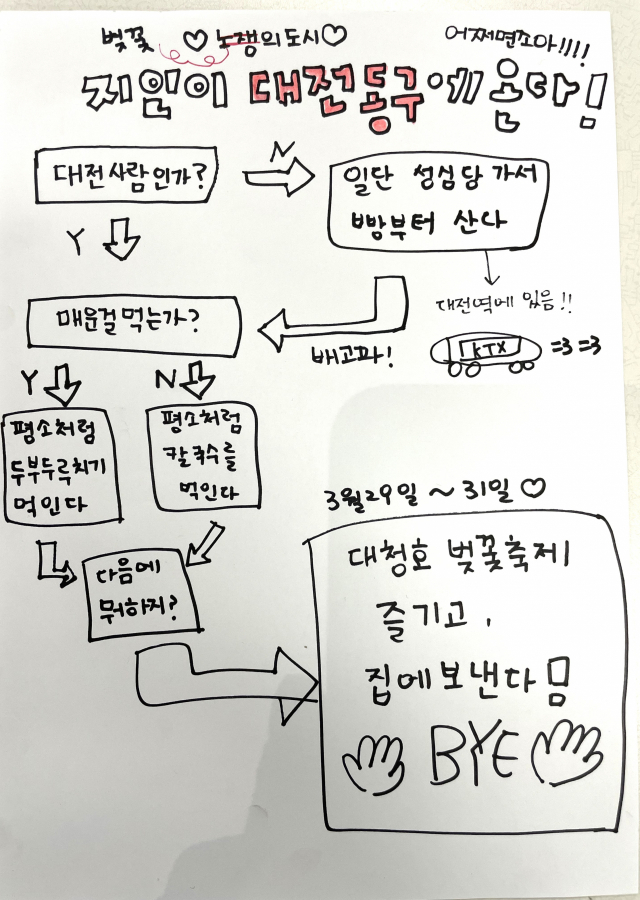 벚꽃
♡ 노쟁의도시♡
어쩌면좋아!!!!
지인이 대전동구에온다!
대전사람인가?
N
일단 성심당 가서
빵부터 산다
Y
대전역에 있음!!
KTX =3 =3
매운걸먹는가?
배고파!
Y
N
평소처럼
두부두루치기
먹인다
평소처럼
칼국수를
먹인다
다음에
뭐하지?
3월29일 ~ 31일 ♡
대청호 벚꽃축제
즐기고,
집에보낸다!
BYE